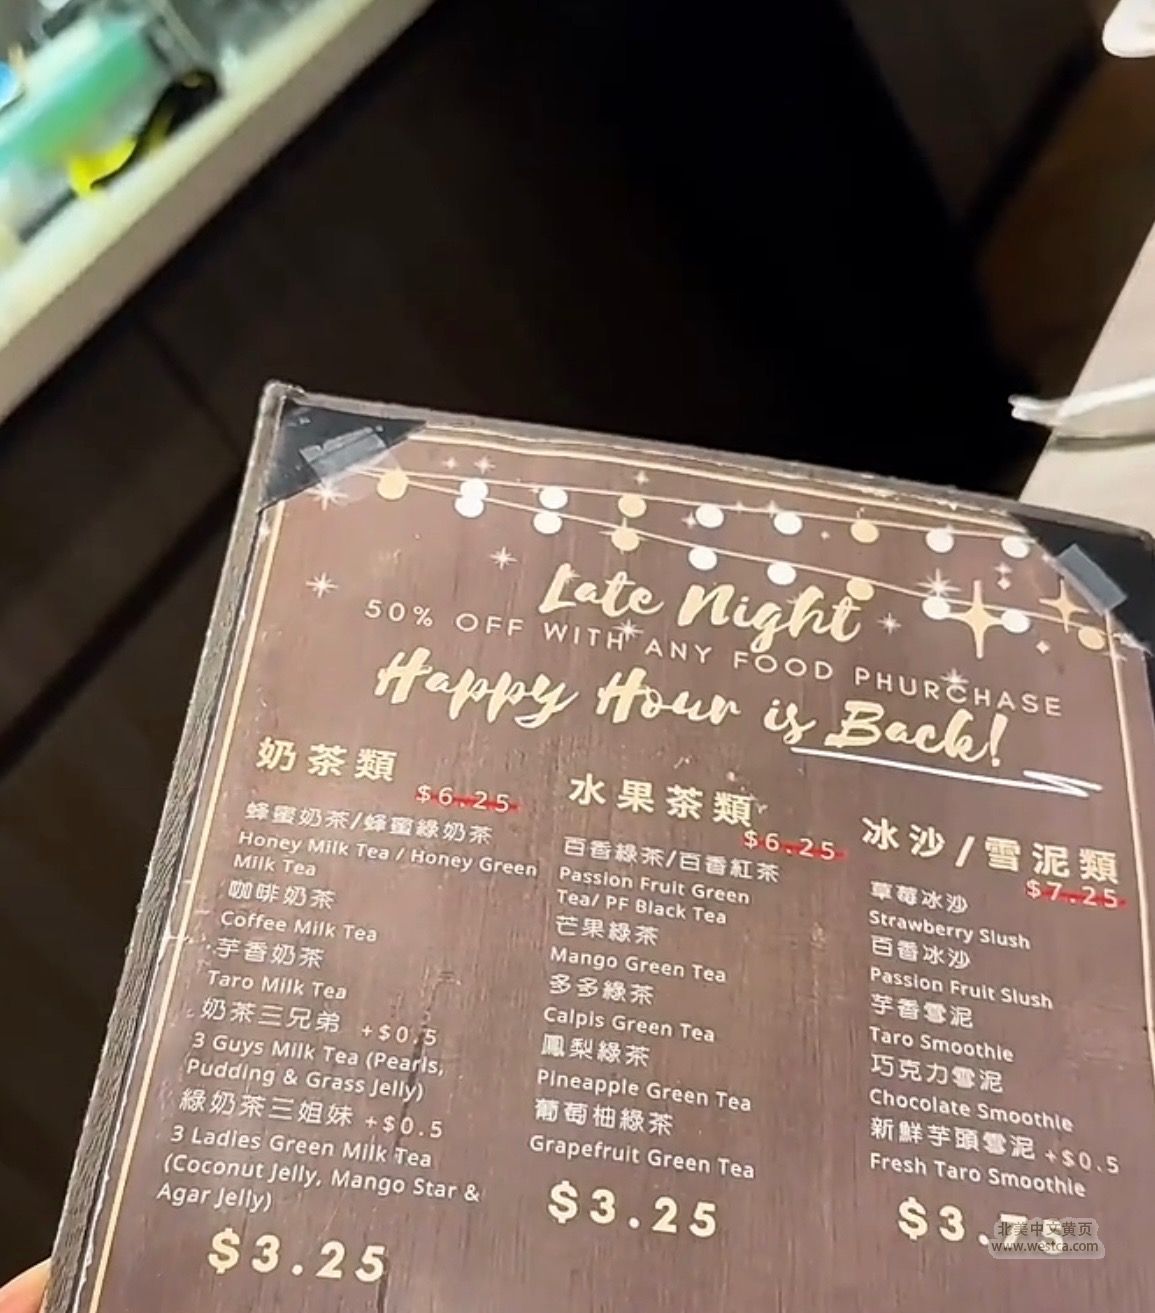 Late Night
50% OFF WITH ANY FOOD PHURCHASE
Happy Hour is Back!
奶茶類
$6.25
蜂蜜奶茶/蜂蜜綠奶茶
Honey Milk Tea / Honey Green
Milk Tea
咖啡奶茶
Coffee Milk Tea
芋香奶茶
Taro Milk Tea
奶茶三兄弟 +$0.5
3 Guys Milk Tea (Pearls,
Pudding & Grass Jelly)
綠奶茶三姐妹 +$0.5
3 Ladies Green Milk Tea
(Coconut Jelly, Mango Star &
Agar Jelly)
$3.25
水果茶類
$6.25
百香綠茶/百香紅茶
Passion Fruit Green
Tea/ PF Black Tea
芒果綠茶
Mango Green Tea
多多綠茶
Calpis Green Tea
鳳梨綠茶
Pineapple Green Tea
葡萄柚綠茶
Grapefruit Green Tea
$3.25
冰沙/雪泥類
$7.25
草莓冰沙
Strawberry Slush
百香冰沙
Passion Fruit Slush
芋香雪泥
Taro Smoothie
巧克力雪泥
Chocolate Smoothie
新鮮芋頭雪泥 +$0.5
Fresh Taro Smoothie
北美中文黄页
www.westca.com